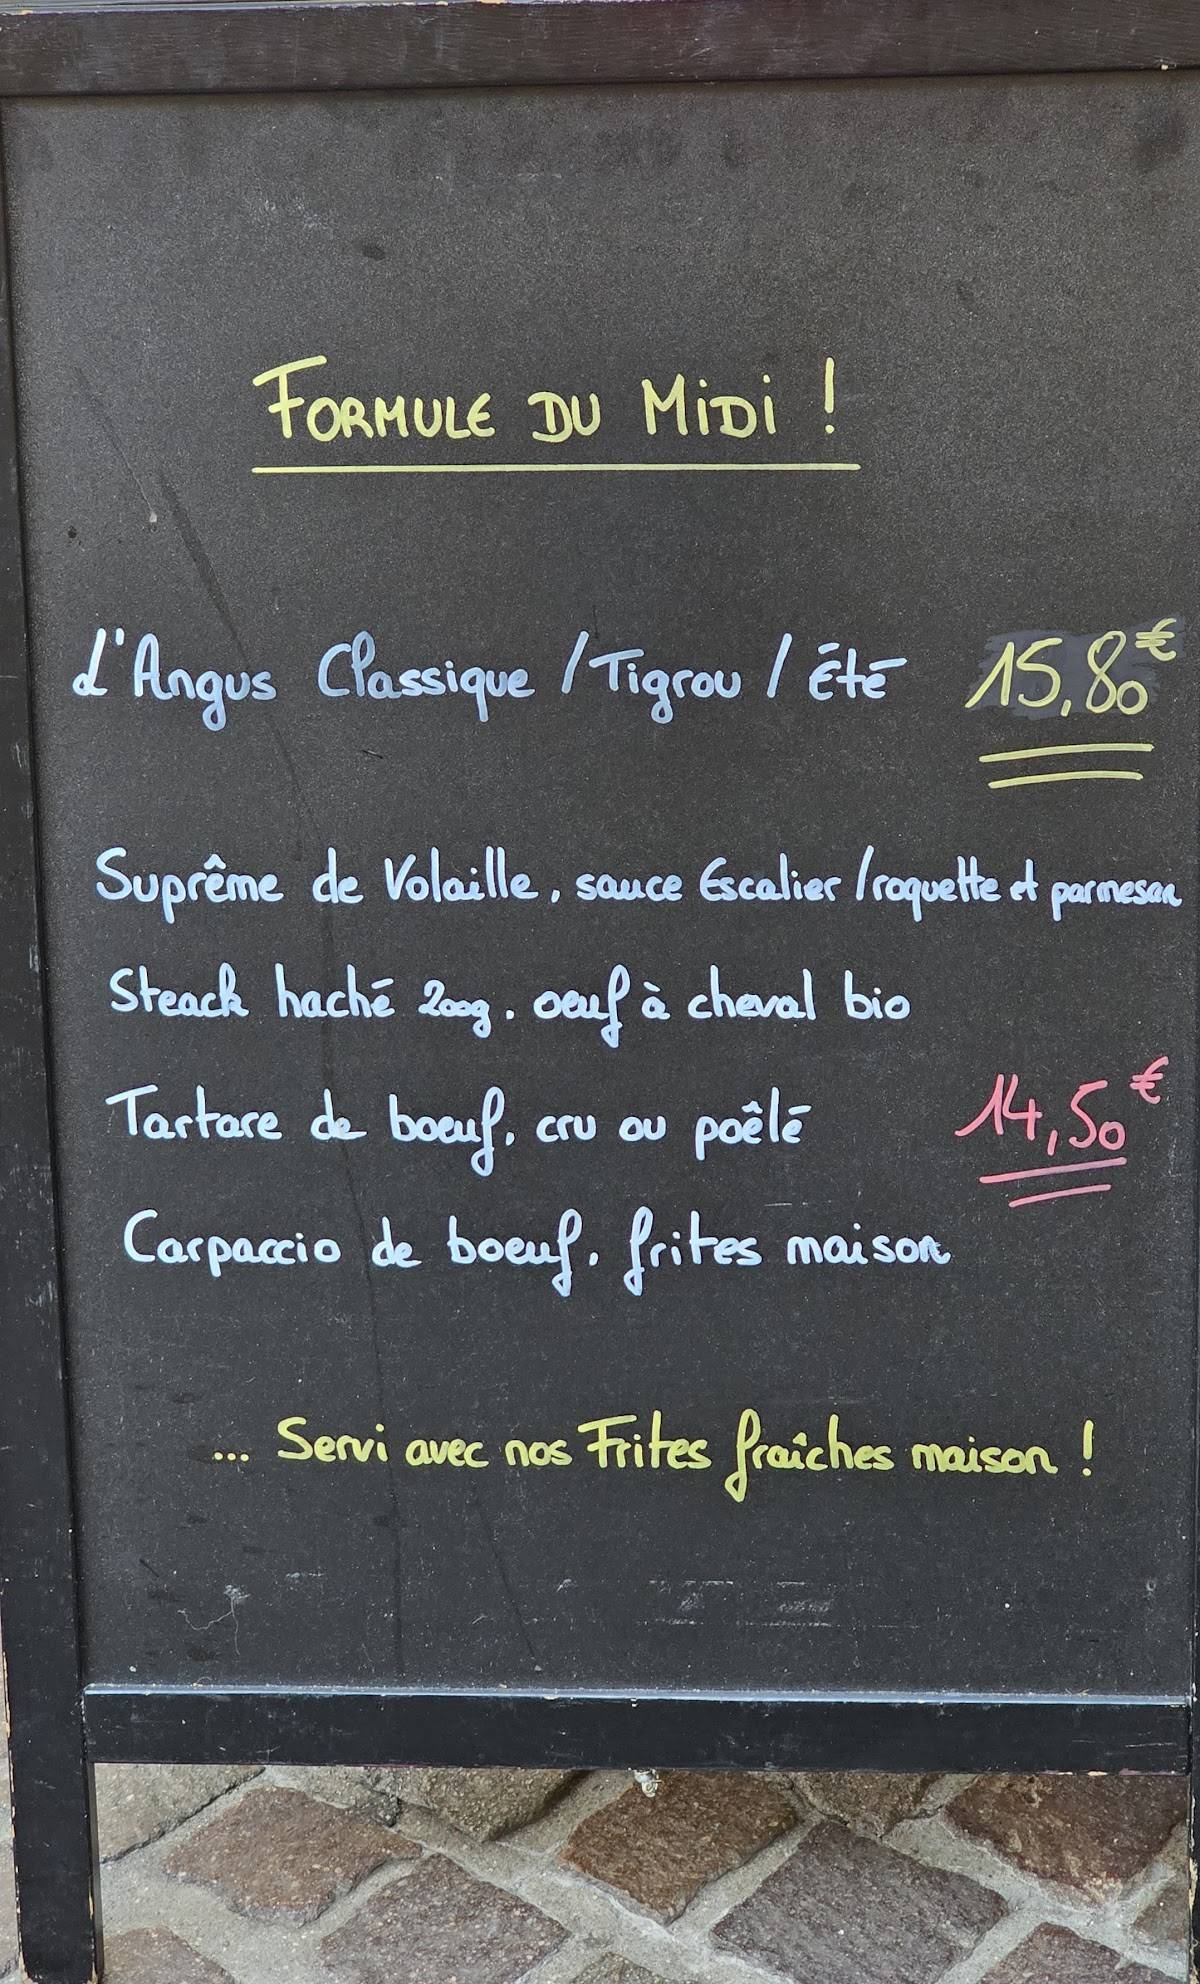 FORMULE DU MIDI !
L'Angus Classique / Tigrou / Été 15,80€
Suprême de Volaille, sauce Escalier / roquette et parmesan
Steack haché 200g, oeuf à cheval bio
Tartare de boeuf, cru ou poêlé 14,50€
Carpaccio de boeuf, frites maison
... Servi avec nos Frites fraîches maison !